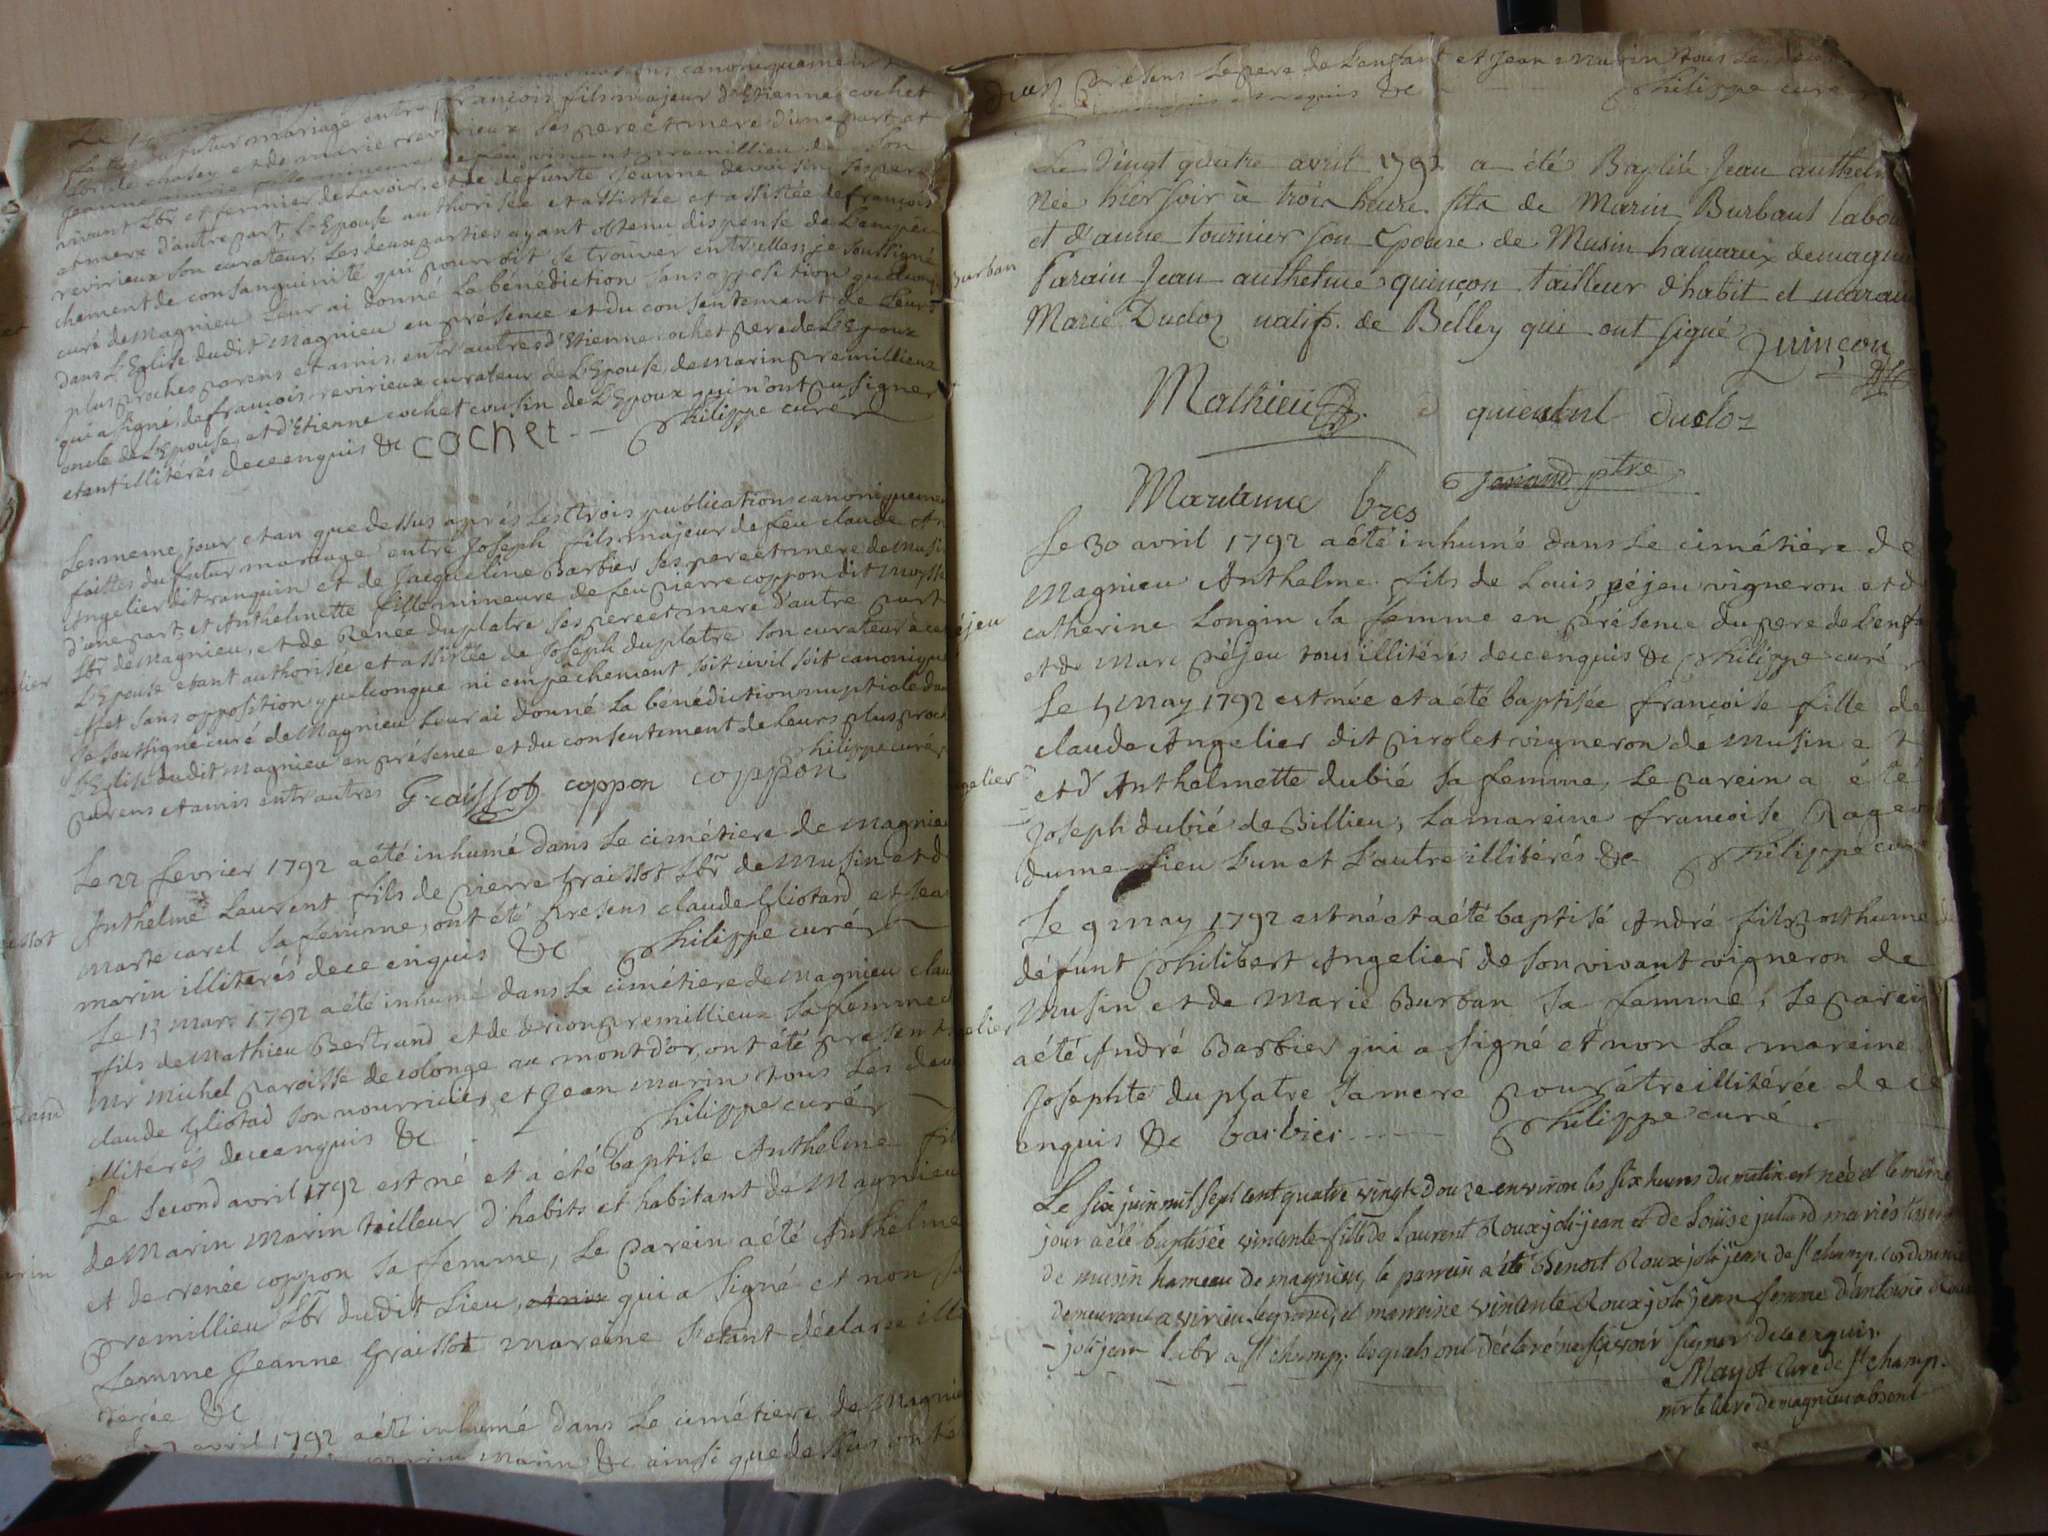 canoniquement
françois fils majeur d'Etienne cochet
faittes du futur mariage entre
Lbr de chasey et de marie revirieux ses pere et mere d'une part et
Jeanne marie fille mineure de feu vincent premillieu de son
vivant Lbr et fermier de Lavoir et de défunte Jeanne devoisin ses pere
et mere d'autre part, L'Epouse authorisée et assistée de françois
revirieux son curateur, Les deux parties ayant obtenu dispense de L'empé
chement de consanguinité qui pourroit se trouver entr'elles, je soussigné
curé de Magnieu Leur ai donné La bénédiction sans opposition quelconque
dans L'Eglise dudit Magnieu en présence et du consentement de Leurs
plus proches parens et amis entr'autres d'Etienne cochet pere de L'Epoux
qui a signé, de françois revirieux curateur de L'Epouse, de marin premillieux
oncle de L'Epouse, et d'Etienne cochet cousin de L'Epoux qui n'ont pu signer
etant illitérés de ce enquis &c cochet Philippe curé
Le meme jour et an que dessus après Les trois publications canoniquemen
faittes du futur mariage entre Joseph fils majeur de feu claude An
Angelier dit ranquin et de Jacqueline Barbier ses pere et mere de Musin
d'une part, et Anthelmette fille mineure de feu pierre coppon dit
Lbr de Magnieu, et de Renée duplatre ses pere et mere d'autre part
L'Epouse etant authorisée et assistée de Joseph duplatre son curateur à cet
effet sans opposition quelconque ni empêchement soit civil soit canonique
Je soussigné curé de Magnieu Leur ai donné La bénédiction nuptiale dans
L'Eglise dudit Magnieu en présence et du consentement de Leurs plus proch
parens et amis entr'autres Graissot coppon coppon Philippe curé
Le 22 fevrier 1792 a été inhumé dans Le cimétiere de Magnie
Anthelme Laurent fils de pierre Graissot Lbr de Musin et de
Marte carel sa femme, ont été présens claude Gliotard, et Jean
marin illiterés de ce enquis &c Philippe curé
Le 13 Mars 1792 a été inhumé dans La cimétiere de Magnieu clau
fils de Mathieu Bertrand et de premillieux sa femme d
Mr Michel paroisse de colonge au mont d'or, ont été présent
claude Gliotad son nourricier, et Jean Marin tous Les deux
illiterés de ce enquis &c Philippe curé
Le second avril 1792 est né et a été baptisé Anthelme fils
de Marin Marin tailleur d'habits et habitant de Magnieu
et de renée coppon sa femme, Le parein a été Anthelme
premillieu Lbr dudit Lieu, qui a signé et non sa
femme Jeanne Graissot mareine s'etant déclarée illi
terée &c
avril 1792 a été inhumé dans Le cimétiere de Magnie
marin Marin &c ainsi que dessus on té
présens Le pere de L'enfant et Jean Marin tous Les deux
enquis &c Philippe curé
Le vingt quatre avril 1792 a été Baptisé Jean anthelm
Née hier soir à trois heure fils de Marin Burbaul labou
et d'anne tournier son Epouse de Musin hameaux de magni
Burban
Parain Jean anthelme quinçon tailleur d'habit et marain
Marie Ducloz natifs de Belley qui ont signé Quinçon
Mathieu ducloz
Marianne bres Jonand ptre
Le 30 avril 1792 a été inhumé dans Le cimétiere de
Magnieu Anthelme fils de Louis péjeu vigneron et de
péjeu
catherine Longin sa femme en présence du pere de L'enfa
et de Marc péjeu tous illitérés de ce enquis &c Philippe curé
Le 5 May 1792 est née et a été baptisée françoise fille de
claude Angelier dit pirolet vigneron de Musin et
angelier
et d'Anthelmette dubié sa femme, Le parein a été
Joseph dubié de Billieu, La mareine françoise Roger
du me Lieu L'un et L'autre illitérés &c Philippe curé
Le 9 may 1792 est né et a été baptisé André fils posthume de
défunt Philibert Angelier de son vivant vigneron de
Musin et de Marie Burban sa femme, Le parein
a été André Barbier qui a signé et non La mareine
Josephte duplatre sa mere pour être illitérée de ce
enquis &c barbier Philippe curé
Le six juin mil sept cent quatre vingt douze environ les six heures du matin est née et le même
jour a été baptisée vincente fille de Laurent Roux joli-jean et de Louise juliard mariés
de musin hameau de magnieu, le parrein a été Benoit Roux joli jean de St champ cordonnier
demeurant a virieu le grand, et marraine vincente Roux joli jean femme d'antoine Roux
joli jean labr a St champ, lesquels ont déclaré ne sçavoir signer de ce enquis.
Mayot curé de St champ.
pr le curé de magnieu absent